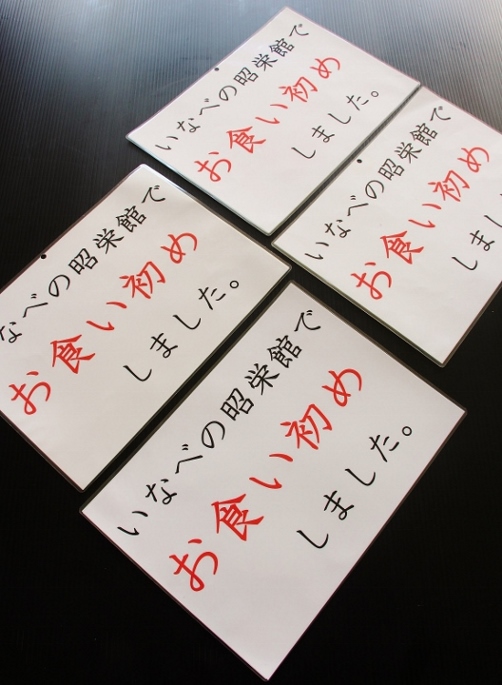 いなべの昭栄館で
お食い初め
しました。
いなべの昭栄館で
お食い初め
しまし
なべの昭栄館で
お食い初め
しました。
いなべの昭栄館で
お食い初め
しました。